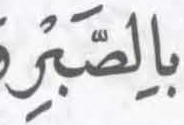 بِالصَّبْرِ